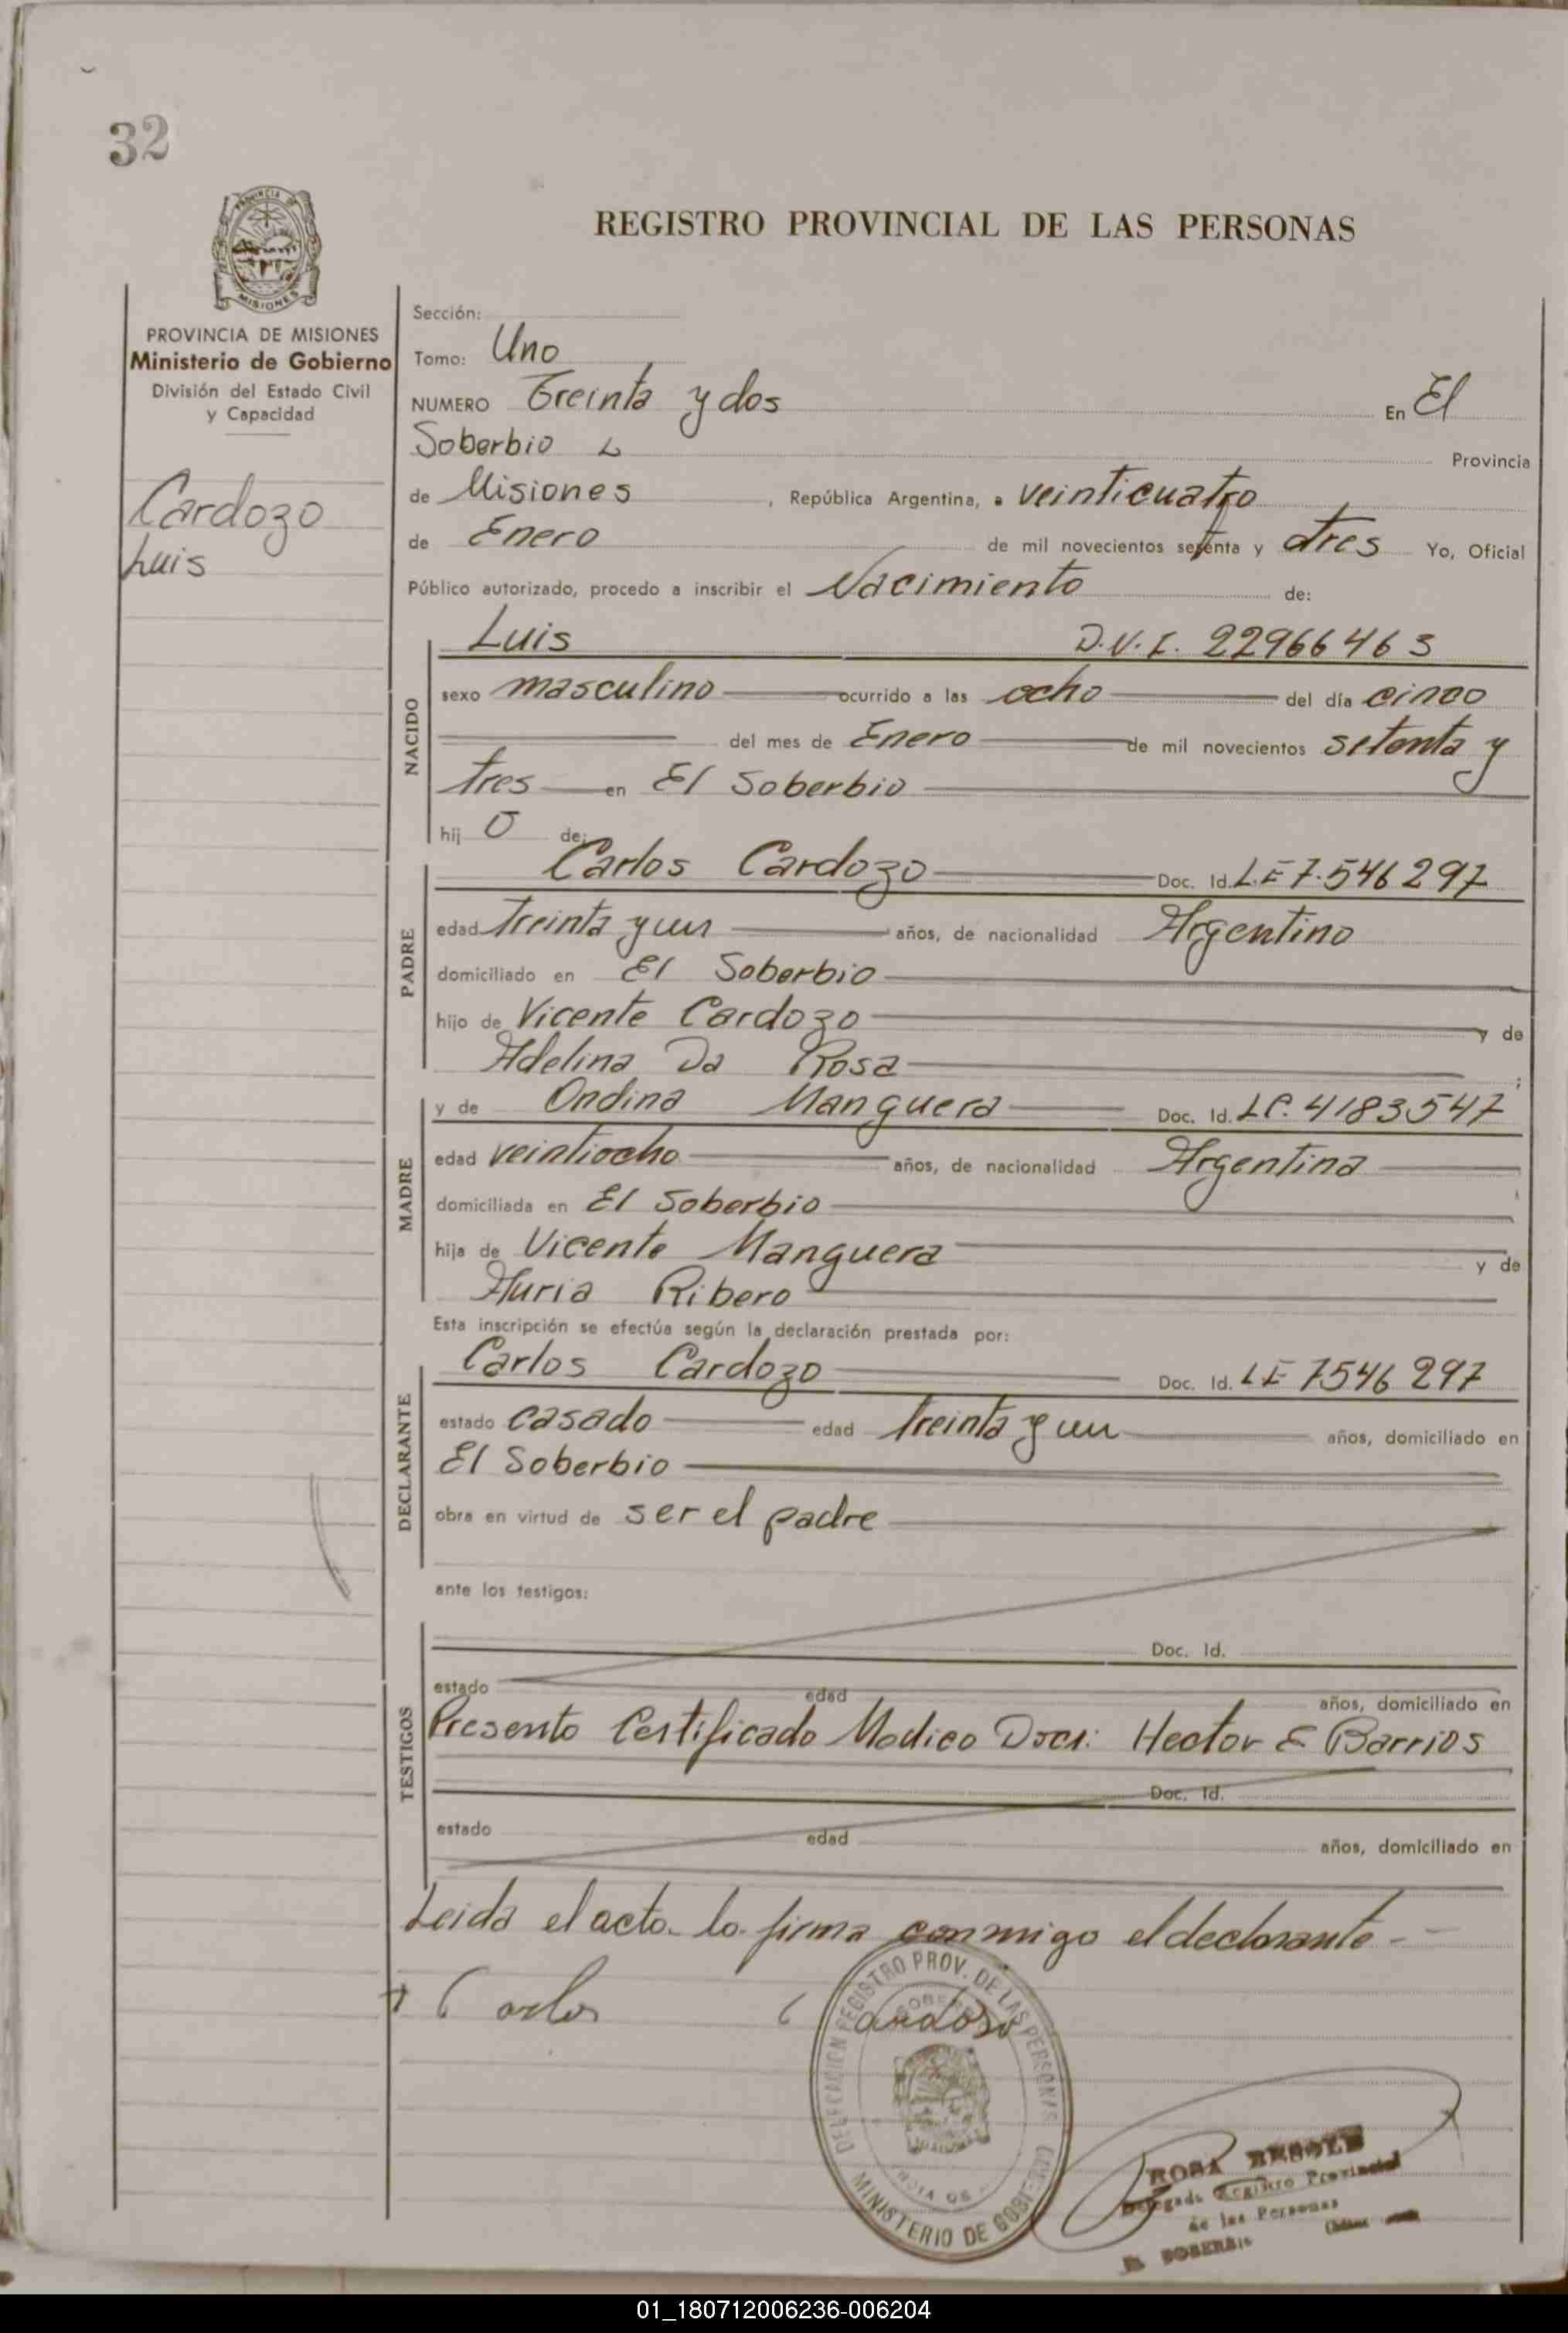 32
PROVINCIA DE
MISIONES
REGISTRO PROVINCIAL DE LAS PERSONAS
PROVINCIA DE MISIONES
Ministerio de Gobierno
División del Estado Civil
y Capacidad
Cardozo
Luis
Sección:
Tomo: Uno
NUMERO Treinta y dos En El
Soberbio Provincia
de Misiones, República Argentina, a veinticuatro
de Enero de mil novecientos setenta y tres Yo, Oficial
Público autorizado, procedo a inscribir el Nacimiento de:
NACIDO
Luis D.N.I. 22966463
sexo masculino ocurrido a las ocho del día cinco
del mes de Enero de mil novecientos setenta y
tres en El Soberbio
hij o de:
PADRE
Carlos Cardozo Doc. Id. L.E 7.546297
edad treinta y un años, de nacionalidad Argentino
domiciliado en El Soberbio
hijo de Vicente Cardozo y de
Adelina Da Rosa ;
MADRE
y de Ondina Manguera Doc. Id. LC. 4183547
edad veintiocho años, de nacionalidad Argentina
domiciliada en El Soberbio
hija de Vicente Manguera y de
Auria Ribero
Esta inscripción se efectúa según la declaración prestada por:
DECLARANTE
Carlos Cardozo Doc. Id. LE 7546297
estado casado edad treinta y un años, domiciliado en
El Soberbio
obra en virtud de ser el padre
ante los testigos:
TESTIGOS
Doc. Id.
estado edad años, domiciliado en
Presento Certificado Medico Doct: Hector E Barrios
Doc. Id.
estado edad años, domiciliado en
Leida el acta lo firma conmigo el declarante -
+ Carlos Cardoso
DELEGACION REGISTRO PROV. DE LAS PERSONAS
MINISTERIO DE GOBIERNO
ROSA
Delegada Registro Provincial
de las Personas
EL SOBERBIO
01_180712006236-006204